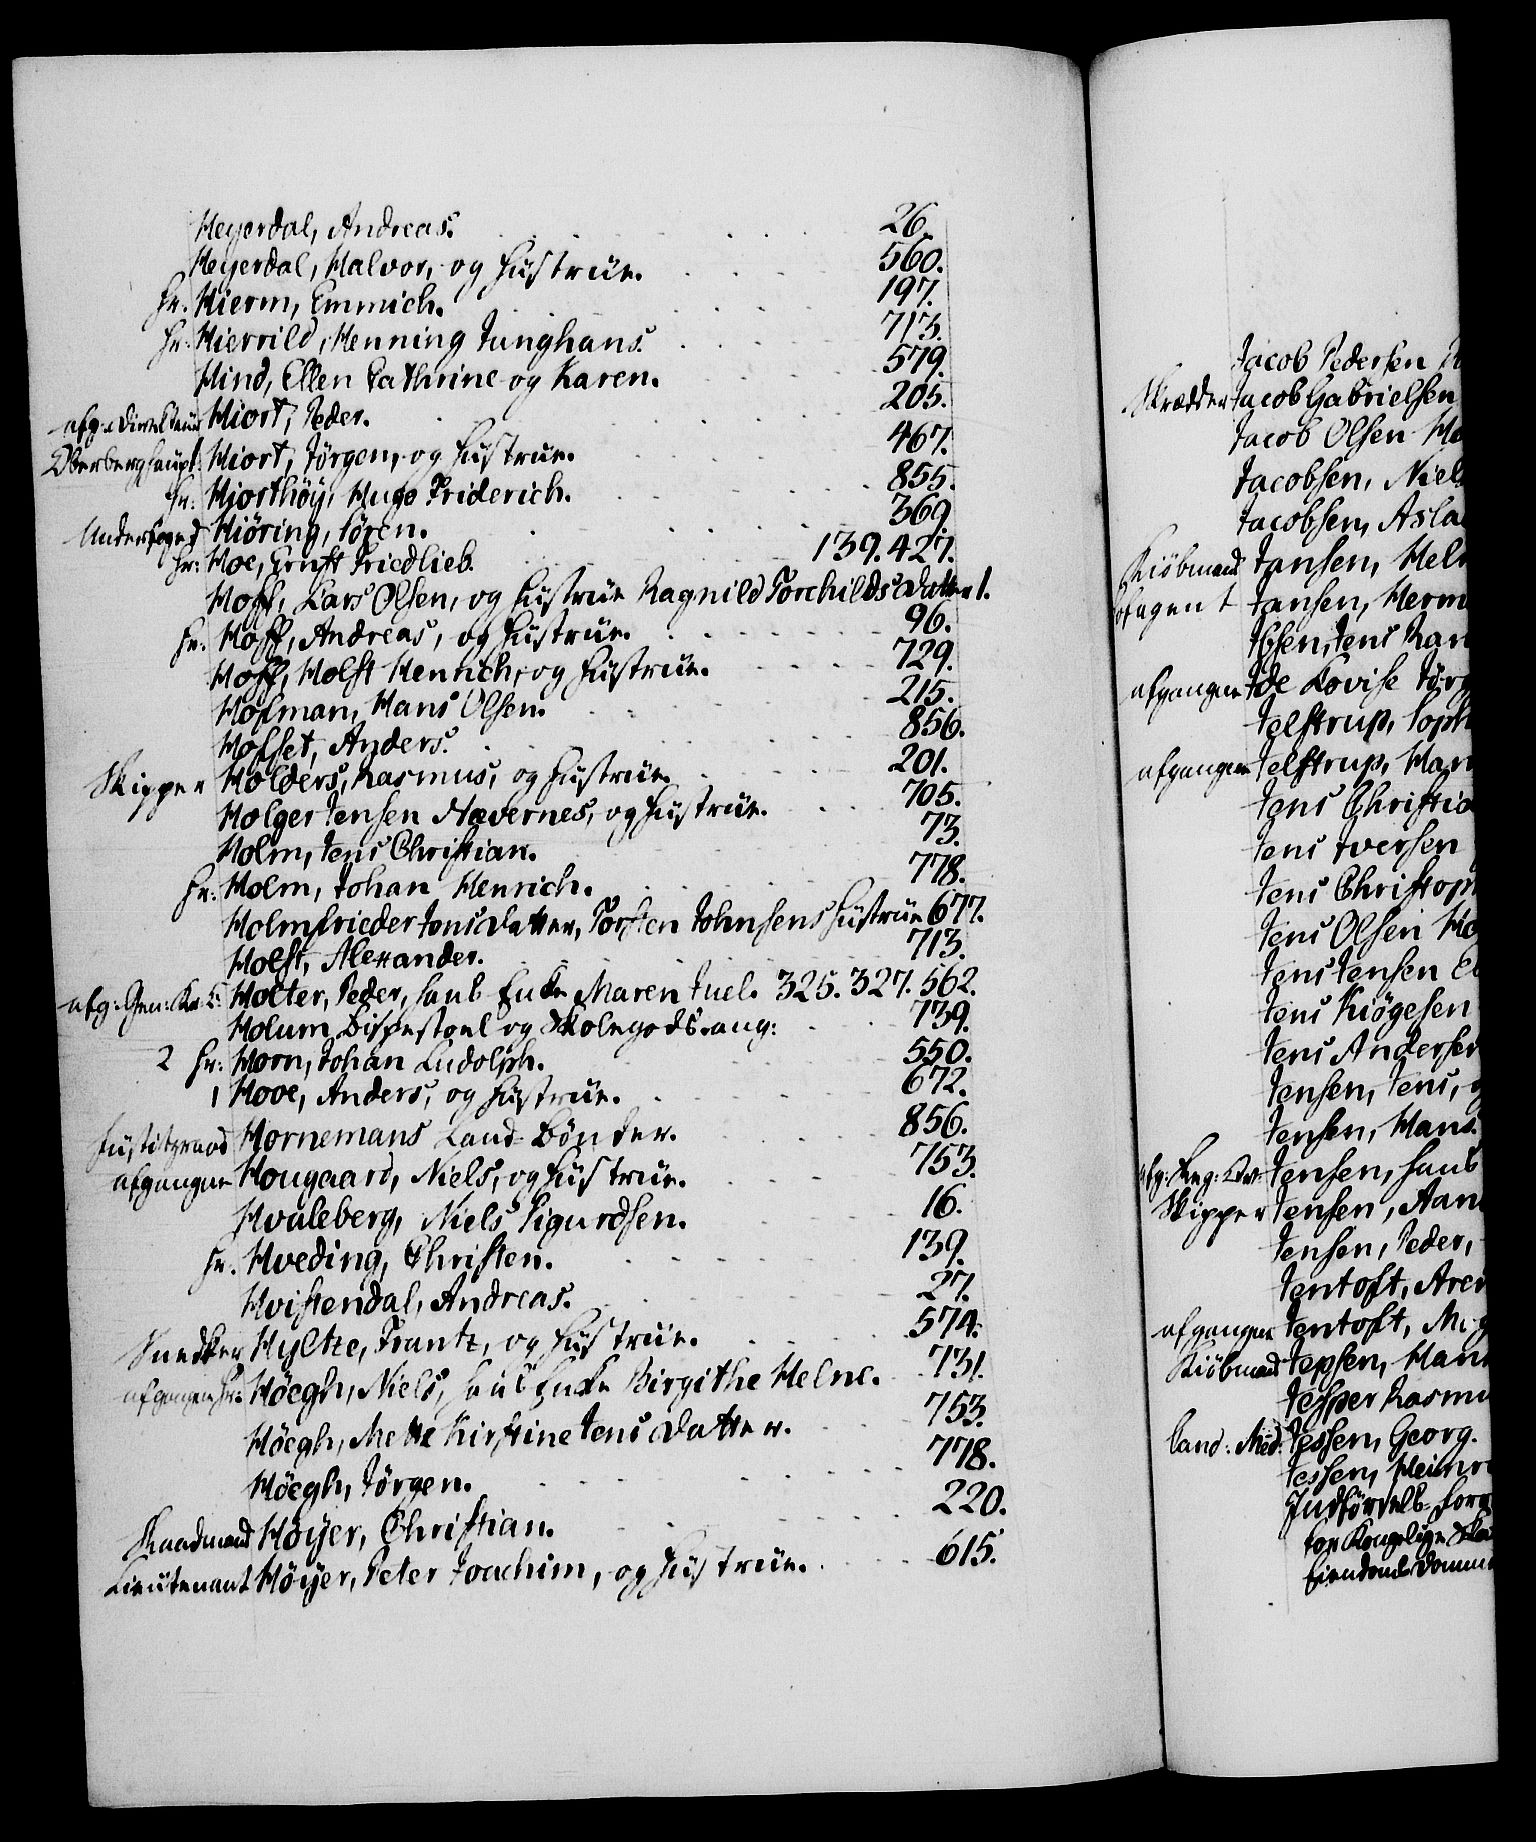 Heyerdal, Andreas. 26.
Heyerdal, Halvor, og Hustrue. 560.
Hr: Hierm, Emmich. 197.
Hr: Hierrild, Henning Junghans. 713.
Hind, Ellen Cathrine og Karen. 579.
afg: Directeur Hiort, Peder. 205.
Oberberghaupt: Hiort, Jørgen, og Hustrue. 467.
Hr: Hjorthöÿ, Hugo Friderich. 855.
Underfoged Hiöring, Sören. 369.
Hr: Hoe, Ernst Friedlieb. 139. 427.
Hoff, Lars Olsen, og Hustrue Ragnild Torchildsdatter 1.
Hr: Hoff, Andreas, og Hustrue. 96.
Hoff, Holst Henrich, og Hustrue. 729.
Hofman, Hans Olsen. 215.
Hofset, Anders. 856.
Skipper Holders, Rasmus, og Hustrue. 201.
Holger Jensen Nævernes, og Hustrue. 705.
Holm, Jens Christian. 73.
Hr: Holm, Johan Henrich. 778.
Holmfrieder Jensdatter, Torsten Johnsens Hustrue 677.
Holst, Alexander. 713.
afg: Gen: Kr: C: Holter, Peder, hans Enke Maren Juel. 325. 327. 562.
Holum Bispestoel og Skolegods ang: 739.
2 Hr: Horn, Johan Ludolph. 550.
1 Hooe, Anders, og Hustrue. 672.
Justitzraad Hornemans Land-Bönder. 856.
afgangne Hougaard, Niels, og Hustrue. 753.
Hvaleberg, Niels Sigurdsen. 16.
Hr. Hveding, Christen. 139.
Hvistendal, Andreas. 27.
Snedker Hyltze, Frantz, og Hustrue. 574.
afgangen Hr: Höegh, Niels, hans Enke Birgithe Helne. 731.
Höegh, Mette Kirstine Jensdatter. 753.
Höegh, Jörgen. 778.
Raadmand Höÿer, Christian. 220.
Lieutenant Höÿer, Peter Joachim, og Hustrue. 615.
Jacob Pedersen
Skrædder Jacob Gabrielsen
Jacob Olsen
Jacobsen, Niels
Jacobsen, Asla
Kiöbmand Jansen, Hel
Jansen, Herm
Ibsen, Jens Ran
afgangne Ide Lovise Jørg
Jelstrup, Soph
afgangne Jelstrup, Han
Jens Christia
Jens Iversen
Jens Christoph
Jens Olsen
Jens Jensen
Jens Kiögesen
Jens Andersen
Jensen, Jens,
Jensen, Hans.
Jensen, hans
Skipper Jensen, Aan
Jensen, Peder,
Jentoft, Aren
afgangne Jentoft,
Kiöbmand Jepsen, Hans
Jesper Rasmu
Land: Med: Jessen, Georg.
Jessen, Heinr
Indförsels-
for Kongelige
Eiendoms Domme